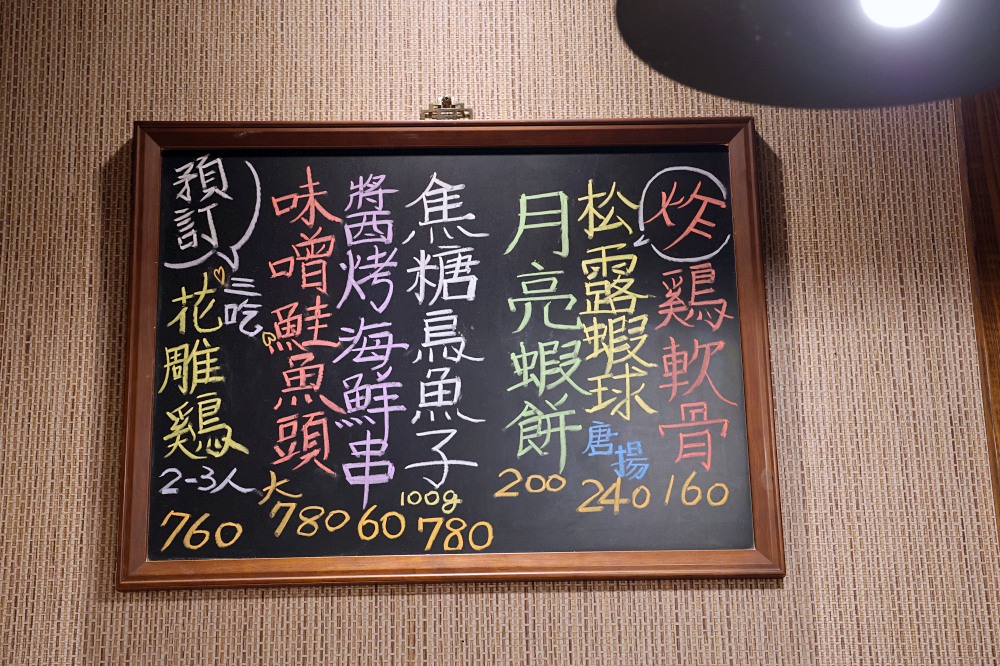 炸
鷄軟骨
160
松露蝦球
唐揚
240
月亮蝦餅
200
焦糖烏魚子
100g
780
醬烤海鮮串
60
味噌鮭魚頭
大
780
預訂
三吃
花雕鷄
2-3人
760